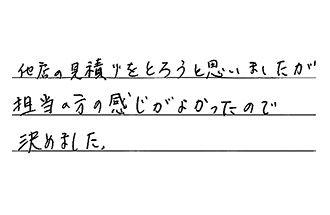 他店の見積りをとろうと思いましたが
担当の方の感じがよかったので
決めました。